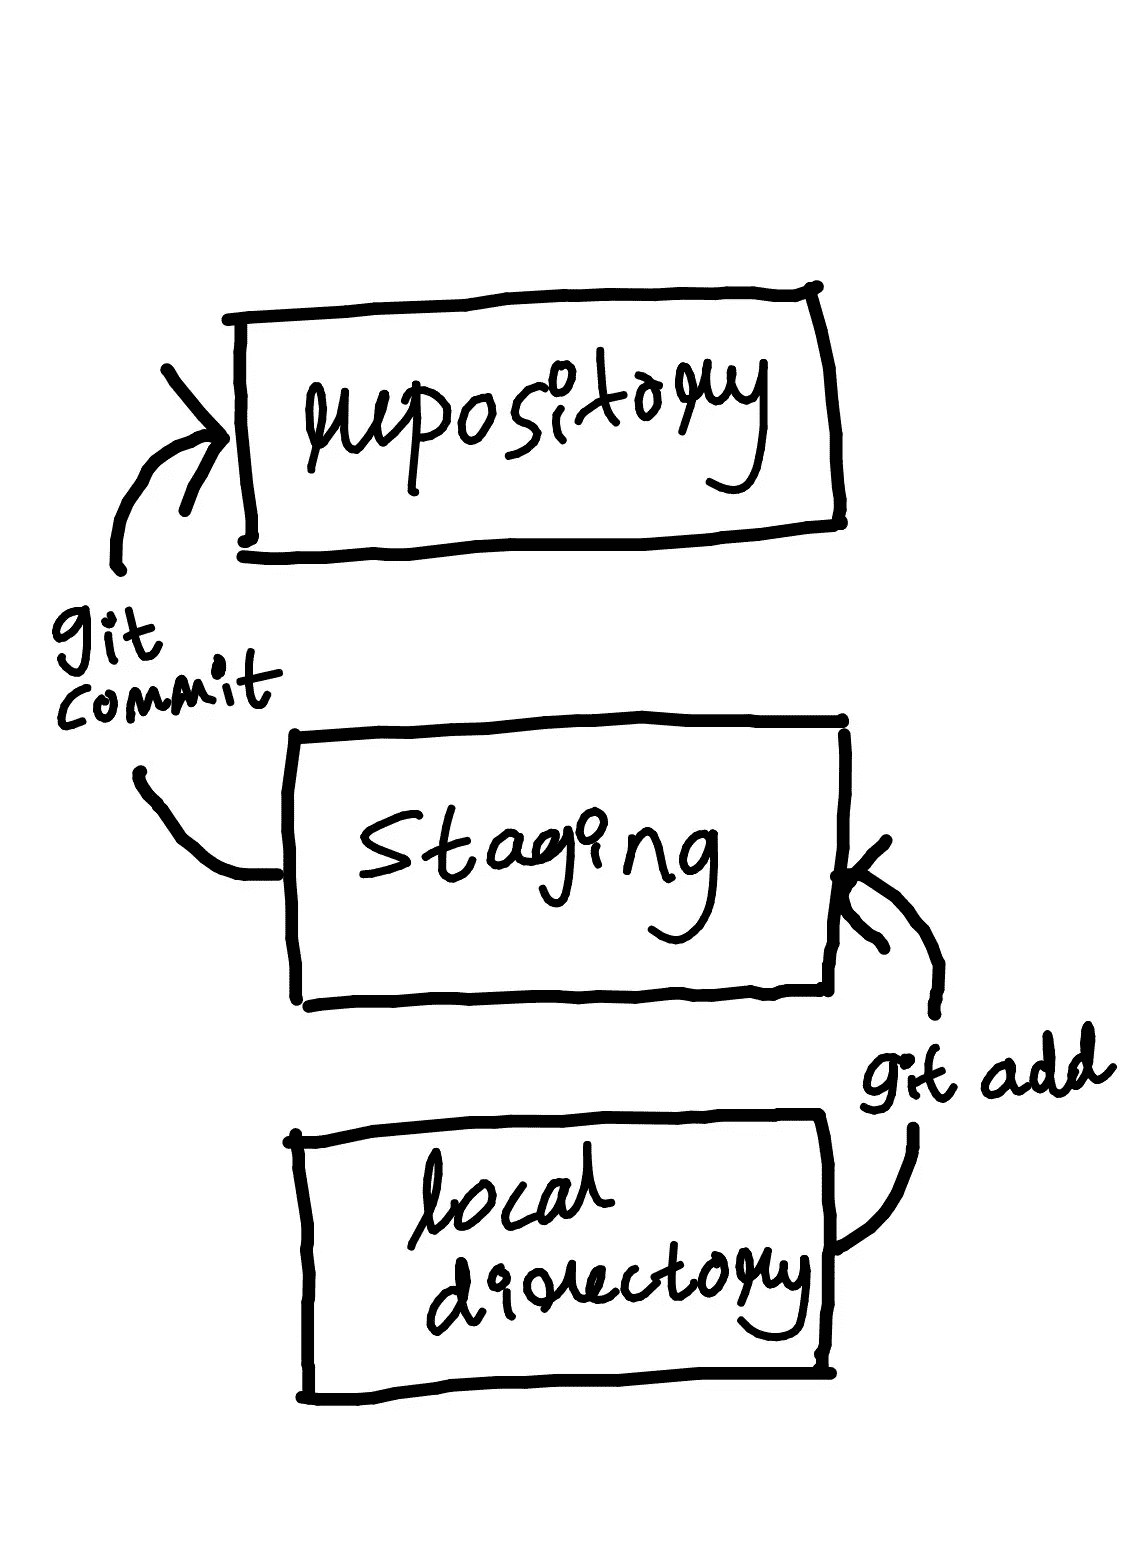 repository
git
commit
staging
git add
local
directory